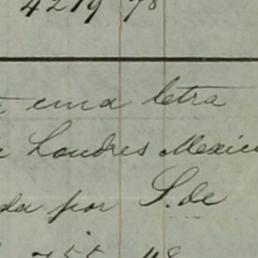 4219 78
una letra
Londres Mexico
da por S. de